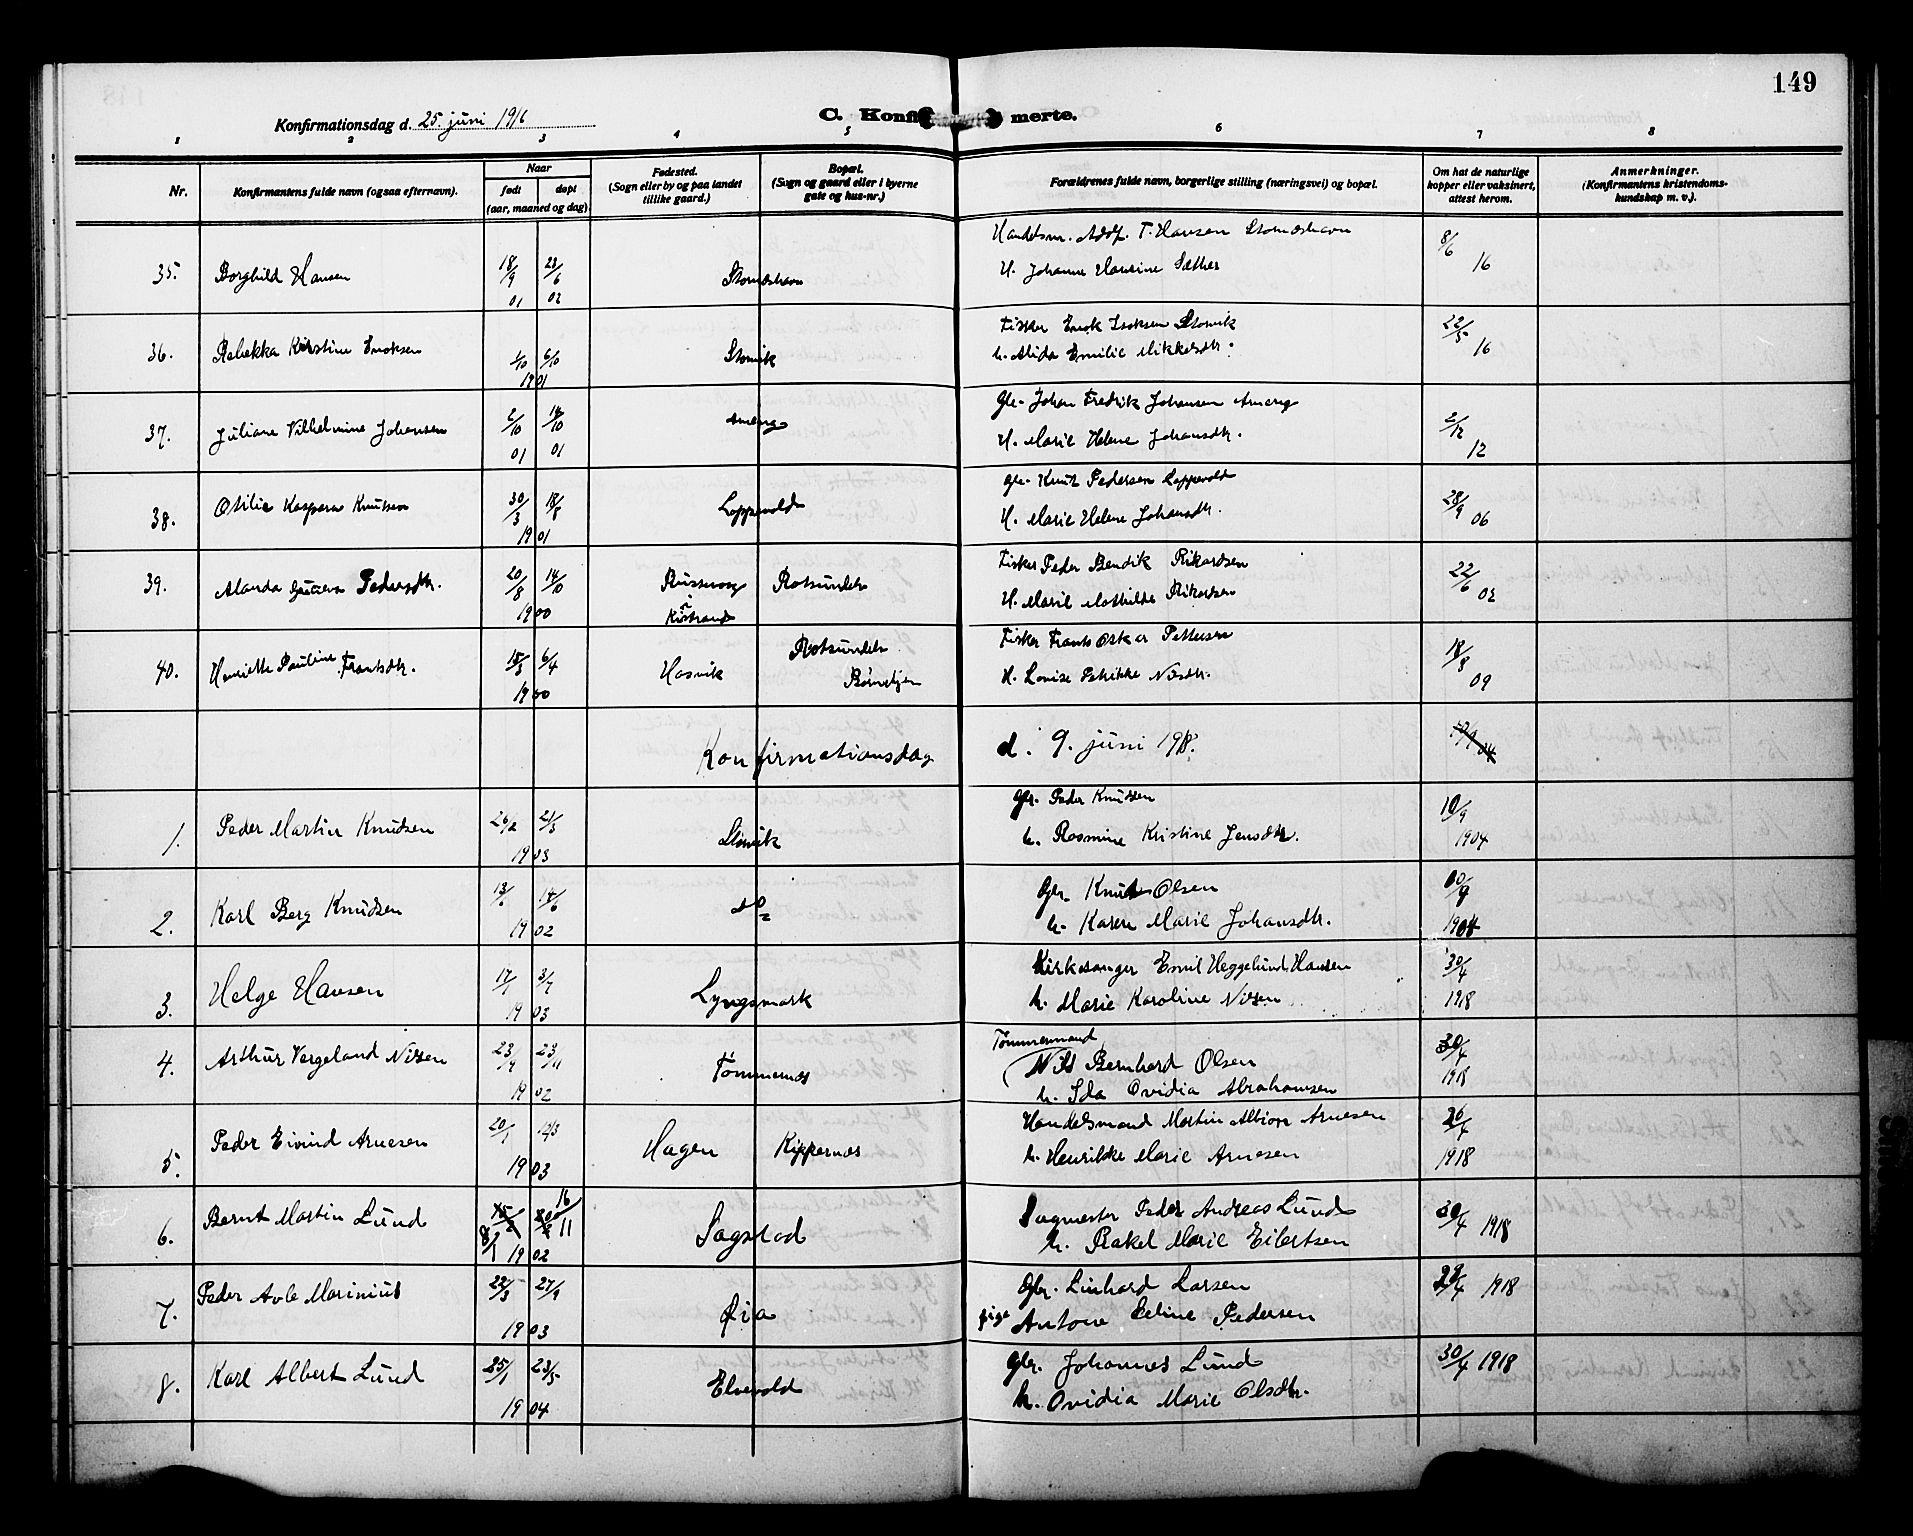 149
Konfirmationsdag d. 25. juni 1916
C. Konfi merte.
1 2 3 4 5 6 7 8
Nr.
Konfirmantens fulde navn (ogsaa efternavn).
Naar
født døpt
(aar, maaned og dag)
Fødested.
(Sogn eller by og paa landet
tillike gaard.)
Bopæl.
(Sogn og gaard eller i byerne
gate og hus-nr.)
Forældrenes fulde navn, borgerlige stilling (næringsvei) og bopæl.
Om hat de naturlige
kopper eller vaksinert,
attest herom.
Anmerkninger.
(Konfirmantens kristendoms-
kundskap m. v.).
35. Borghild Hansen 18/9 01 23/6 02 Storneshavn
Handelsm. Adolf T. Hansen Storneshavn 8/6 16
H. Johanne Hansine Sæther
36. Rebekka Kirstine Enoksen 1/10 6/10 1901 Storvik
Fisker Enok Isaksen Storvik 22/5 16
h. Alida Emilie Mikkelsdtr.
37. Juliane Vilhelmine Johansen 2/10 01 14/10 01
Gbr. Johan Fredrik Johansen 2/12 12
H. Marie Helene Johansdtr.
38. Otilie Kaspara Knutsen 30/3 18/8 1901 Loppevold
Gbr. Knut Pedersen Loppevold 28/9 06
H. Marie Helene Johansdtr.
39. Alanda Pedersdtr. 20/8 14/10 1900 Kistrand Rotsundelv
Fisker Peder Bendik Rikardsen 22/6 02
H. Marie Mathilde Rikardsen
40. Henriette Pauline Frantsdtr. 15/3 6/4 1900 Hasvik Rotsundelv
Fisker Frants Oskar Pettersen 18/8 09
H. Lovise Petrikke Nilsdtr.
Konfirmationsdag d. 9. juni 1918.
1. Peder Martin Knudsen 26/2 21/3 1903 Storvik
Gbr. Peder Knudsen 10/9 1904
h. Rasmine Kristine Jensdtr.
2. Karl Berg Knudsen 14/6 1902 do
Gbr. Knut Olsen
h. Karen Marie Johansdtr. 1904
3. Helge Hansen 17/1 3/7 1903 Lyngsmark
Kirkesanger Emil Heggelund Hansen 30/4
h. Marie Karoline Nilsen 1918
4. Arthur Vergeland Nilsen 23/11 1902 Tømmernes
Tømmermand
Nils Bernhard Olsen 30/4
h. Ida Ovidia Abrahamsen 1918
5. Peder Eivind Arnesen 20/1 1903 Hagen Kippernes
Handelsmand Martin Albion Arnesen
h. Henrikke Marie Arnesen 1918
6. Bernt Martin Lund 8/1 16/11 1902 Sagstad
Sagmester Peder Andreas Lund 30/4 1918
h. Rakel Marie Eilertsen
7. Peder Avle Marinius 22/3 27/9 1903 Øia
Gbr. Linhard Larsen 29/4 1918
pige Antone Eeline Pedersen
8. Karl Albert Lund 25/1 23/5 1904 Elvevold
Gbr. Johannes Lund 30/4 1918
h. Ovidia Marie Olsdtr.